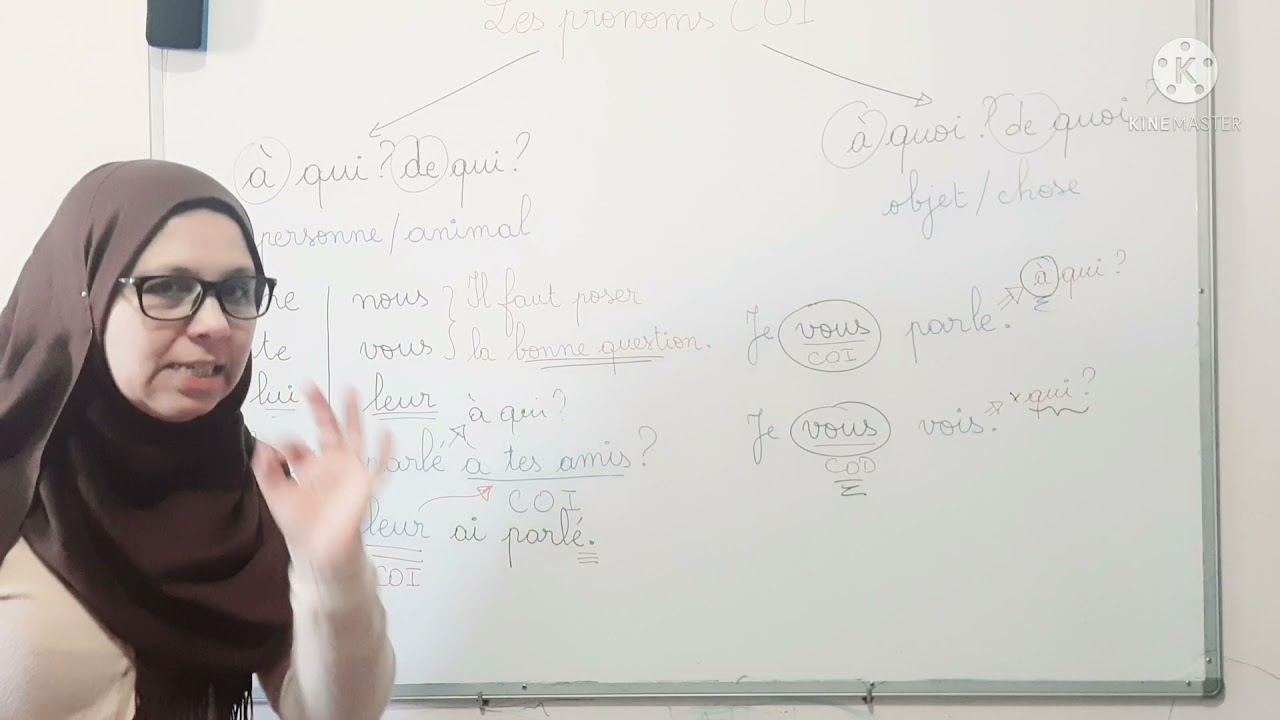 Les pronoms COI
à qui ? de qui ?
personne / animal
te
lui
nous
vous
leur
Il faut poser
la bonne question.
à qui ?
parlé à tes amis ?
COI
leur ai parlé.
COI
à quoi ? de quoi ?
objet / chose
Je vous parle. à qui ?
COI
Je vous vois. qui ?
COD
K
KINEMASTER